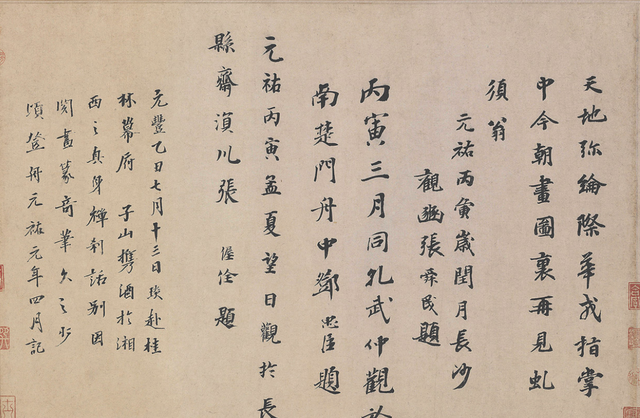 天地弥綸際華戎指掌
中今朝畫圖裏再見虬
須翁
元祐丙寅歲閏月長沙
觀豳張舜民題
丙寅三月同孔武仲觀於
南楚門舟中鄧忠臣題
元祐丙寅孟夏望日觀於長
縣齋湞川張 佺題
元豐乙丑七月十三日琰赴桂
林幕府 子山攜酒於湘
西之真身禪刹話別因
閱畫篆奇筆久之少
頃登舟元祐元年四月記